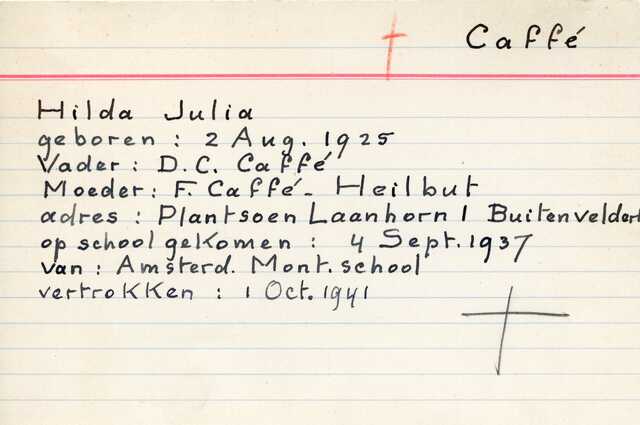 Caffé
Hilda Julia
geboren : 2 Aug. 1925
Vader : D.C. Caffé
Moeder : F. Caffé - Heilbut
adres : Plantsoen Laanhorn 1 Buitenveldert
op school gekomen : 4 Sept. 1937
van : Amsterd. Mont. school
vertrokken : 1 Oct. 1941